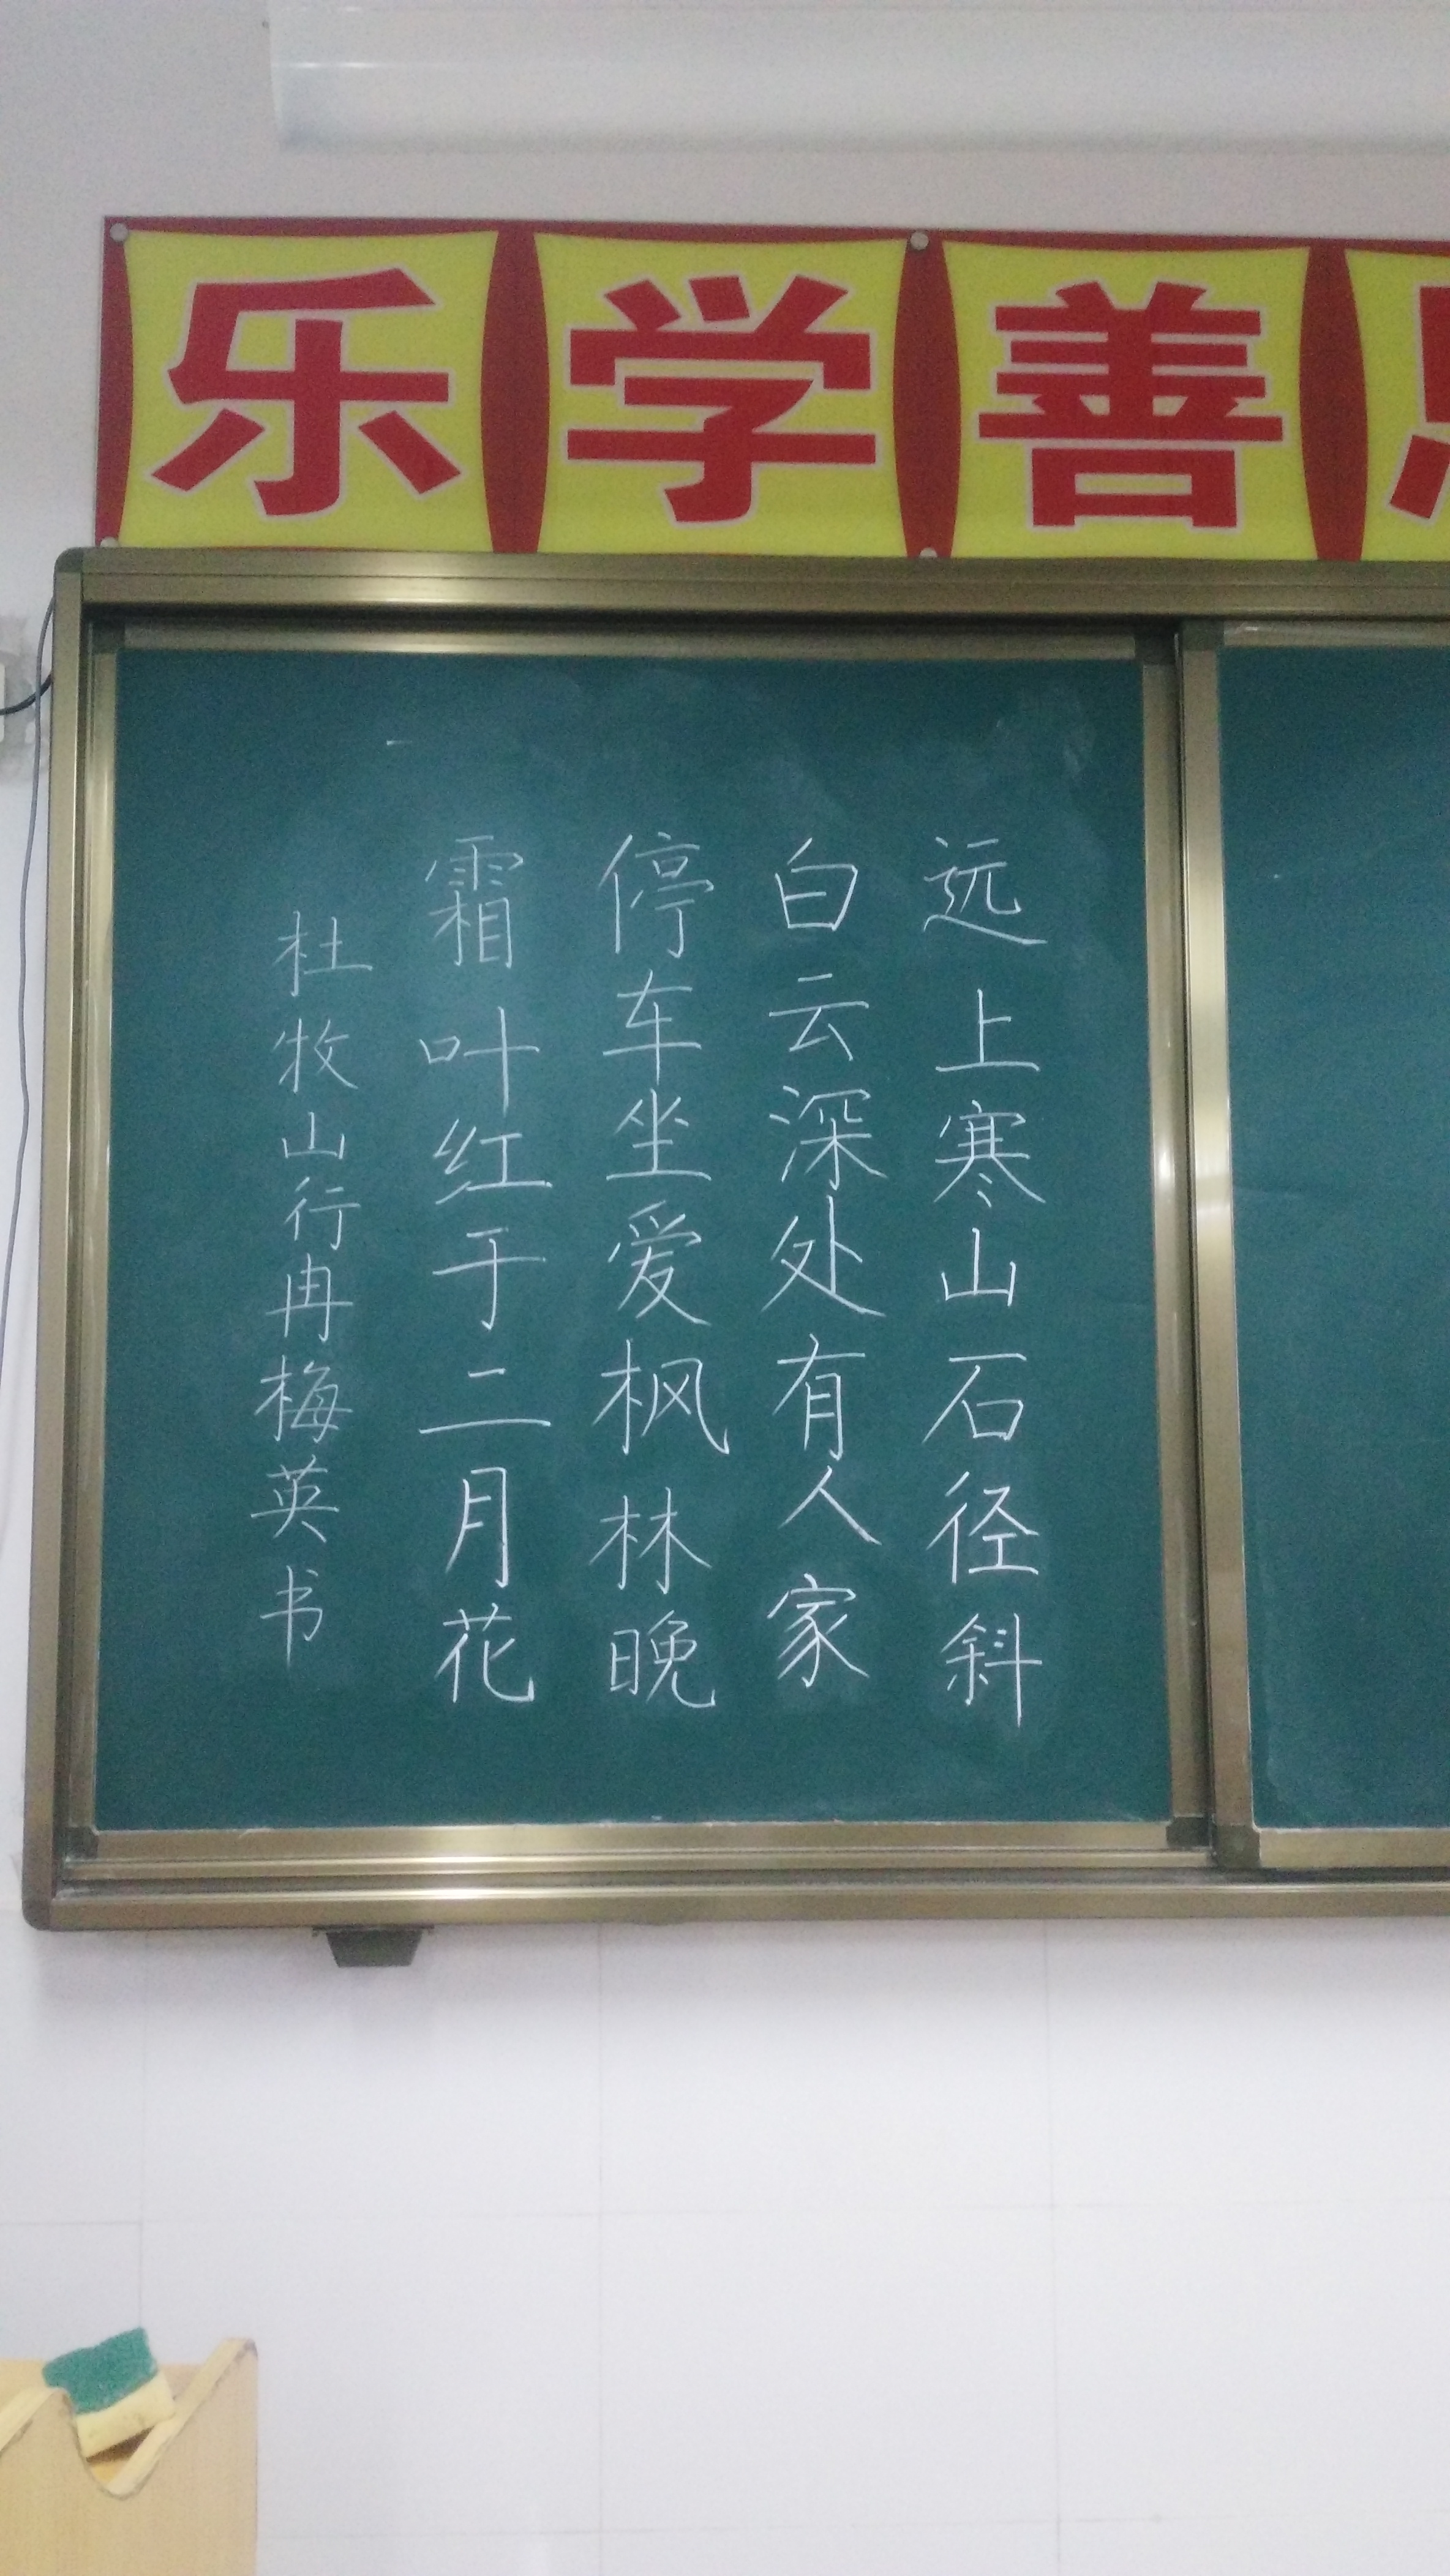 乐学善
远上寒山石径斜
白云深处有人家
停车坐爱枫林晚
霜叶红于二月花
杜牧山行冉梅英书